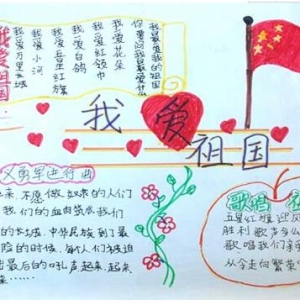 我爱祖国
我爱万里长城
我爱小河
我爱五星红旗
我爱白鸽
我爱红领巾
我爱花朵
你要问我最爱什么
我最爱我的祖国
我爱祖国
义勇军进行曲
来，不愿做 奴隶的人们
我们的血肉筑成我们
的长城，中华民族到了最
险的时候，每个人们被迫
出最后的吼声起来，起来
歌唱
五星红旗迎风
胜利歌声多么
歌唱我们亲
从今走向繁荣